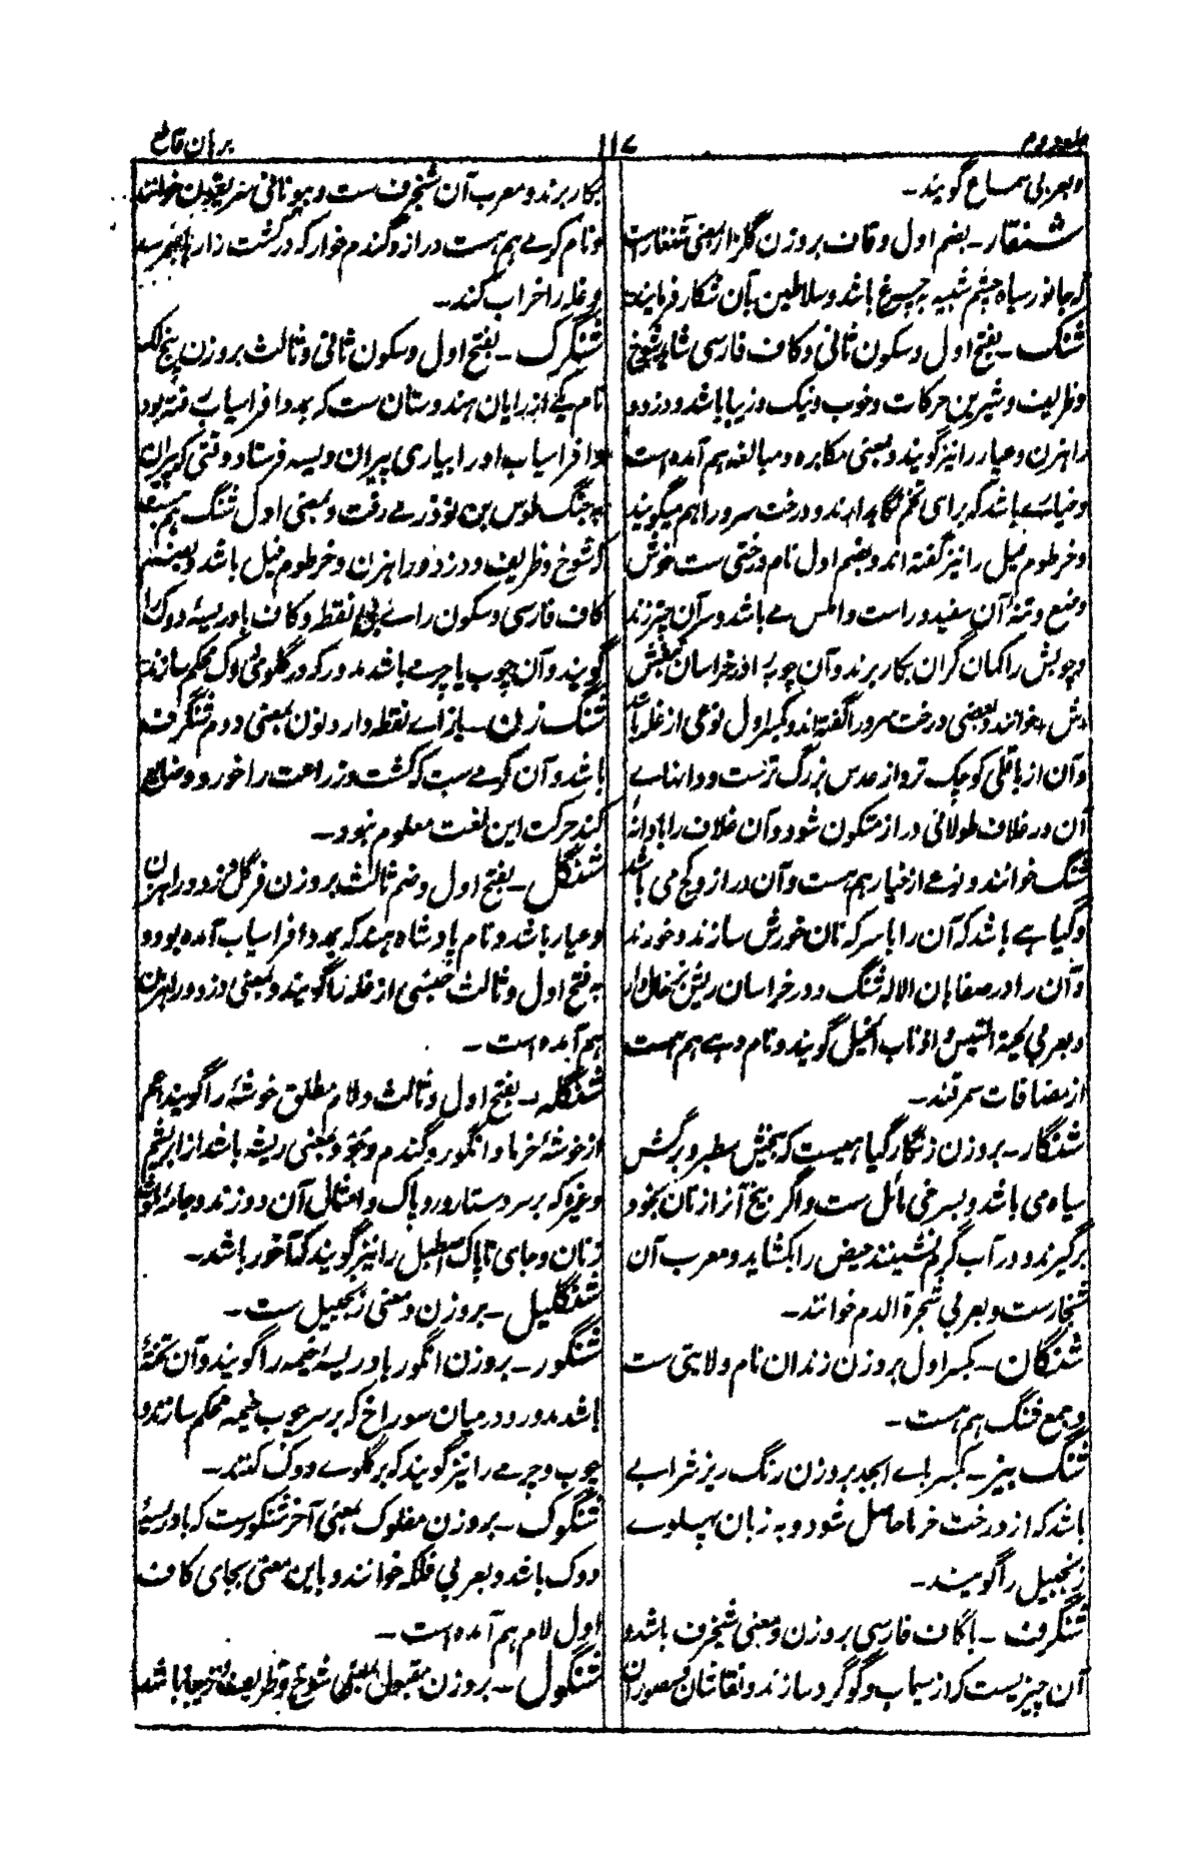 جلد دوم
۱۱۷
برهان قاطع
وبعربی سماع گویند۔
شنقار۔ بضم اول وقاف بروزن گلزار بمعنی شنغارست
که جانور سیاه چشم شبیه به چرغ باشد وسلاطین بآن شکار فرمایند
شنگ۔ بفتح اول وسکون ثانی وکاف فارسی شاهد شوخ
وظریف وشیرین حرکات وخوب ونیک وزیبا باشد ودزد و
راهزن وعیار را نیز گویند وبمعنی مکابره ومبالغه هم آمده است
وخیارے باشد که برای تخم نگاه دارند ودرخت سرو را هم میگویند
وخرطوم فیل را نیز گفته اند وبضم اول نام درختی ست خوش
وضع وتنهٔ آن سفید وراست واملس مے باشد وسرآن چتر زند
وچوبش را کمان گران بکار برند وآن چوب را در خراسان
خوانند وبعضی درخت سرو را گفته اند وبکسر اول نوعی از غله باشد
وآن از باقلی کوچک تر واز عدس بزرگ ترست ودانهاے
آن در غلاف طولانی دراز متکون شود وآن غلاف را با دانهٔ
شنگ خوانند ونوعے از خیار هم هست وآن دراز وکج می باشد
وگیاهے باشد که آن را با سرکه نان خورش سازند وخورند
وآن را در صفاهان الاله شنگ ودر خراسان ریش بز خوانند
وبعربی لحیة التیس واذناب الخیل گویند ونام دهے هم هست
از مضافات سمرقند۔
شنگار۔ بروزن زنگار گیاهیست که بیخش سطبر وبرگش
سیاه می باشد وبسرخی مائل ست واگر بیخ آنرا زنان بخود
برگیرند ودر آب گرم نشینند حیض را بکشاید ومعرب آن
شنجارست وبعربی شجرة الدم خوانند۔
شنگان۔ بکسر اول بروزن زندان نام ولایتی ست
وجمع شنگ هم هست۔
شنگ بیز۔ بکسر باے ابجد بروزن رنگ ریز شرابے
باشد که از درخت خرما حاصل شود وبه زبان پهلوے
زنجبیل را گویند۔
شنگرف۔ باکاف فارسی بروزن ومعنی شنجرف باشد و
آن چیزیست که از سیماب وگوگرد سازند ونقاشان ومصوران
بکار برند ومعرب آن شنجرف ست وبیونانی خوانند
ونام کرمے هم هست دراز وگندم خوار که در کشت زار بهم رسد
وغله را خراب کند۔
شنگرک۔ بفتح اول وسکون ثانی وثالث بروزن پنج لک
نام یکے از رایان هندوستان ست که بمدد افراسیاب رفته بود
وافراسیاب او را بیاری پیران ویسه فرستاد وقتی که پیران
به جنگ طوس بن نوذر مے رفت وبمعنی اول شنگ هم هست
که شوخ وظریف ودزد وراهزن وخرطوم فیل باشد وبضم
کاف فارسی وسکون راے بی نقطه وکاف بادریسهٔ دوک را
گویند وآن چوب یا چرمے باشد مدور که در گلوی دوک محکم سازند
شنگ زن۔ بازاے نقطه دار ونون بمعنی دوم شنگرف
باشد وآن کرمے ست که کشت وزراعت را خورد وضائع
کند حرکت این لغت معلوم نبود۔
شنگل۔ بفتح اول وضم ثالث بروزن فرگل دزد وراهزن
وعیار باشد ونام پادشاه هند که بمدد افراسیاب آمده بود و
به فتح اول وثالث جنسی از غله را گویند وبمعنی دزد وراهزن
هم آمده است۔
شنگله۔ بفتح اول وثالث ولام مطلق خوشه را گویند اعم
از خوشهٔ خرما وانگور وگندم وجو وبمعنی ریشه باشد از ابریشم
وغیره که بر سر دستار وروپاک وامثال آن دوزند وجامهٔ
زنان وجای ناپاک اصطبل را نیز گویند که آخور باشد۔
شنگلیل۔ بروزن ومعنی زنجبیل ست۔
شنگور۔ بروزن انگور بادریسهٔ خیمه را گویند وآن تختهٔ
باشد مدور ودرمیان سوراخ که بر سر چوب خیمه محکم سازند و
چوب وچرمے را نیز گویند که بر گلوے دوک کنند۔
شنگوک۔ بروزن مفلوک بمعنی آخر شنگورست که بادریسهٔ
دوک باشد وبعربی فلکه خوانند وباین معنی بجای کاف
اول لام هم آمده است۔
شنگول۔ بروزن مقبول بمعنی شوخ وظریف ورعنا باشد